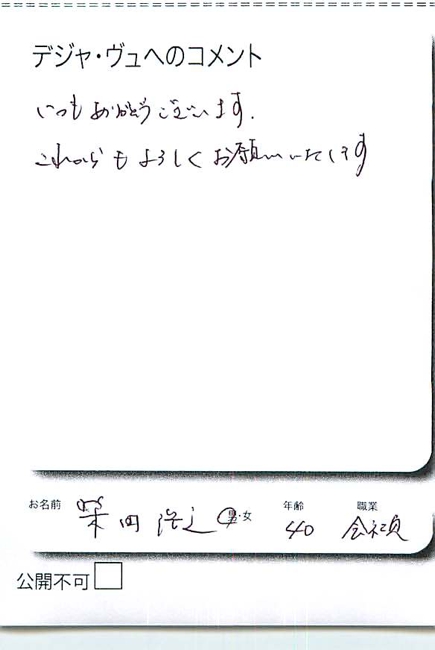 デジャ・ヴュへのコメント
いつもありがとうございます.
これからもよろしくお願いいたします
お名前 栄田 浩之 男・女 年齢 40 職業 会社員
公開不可